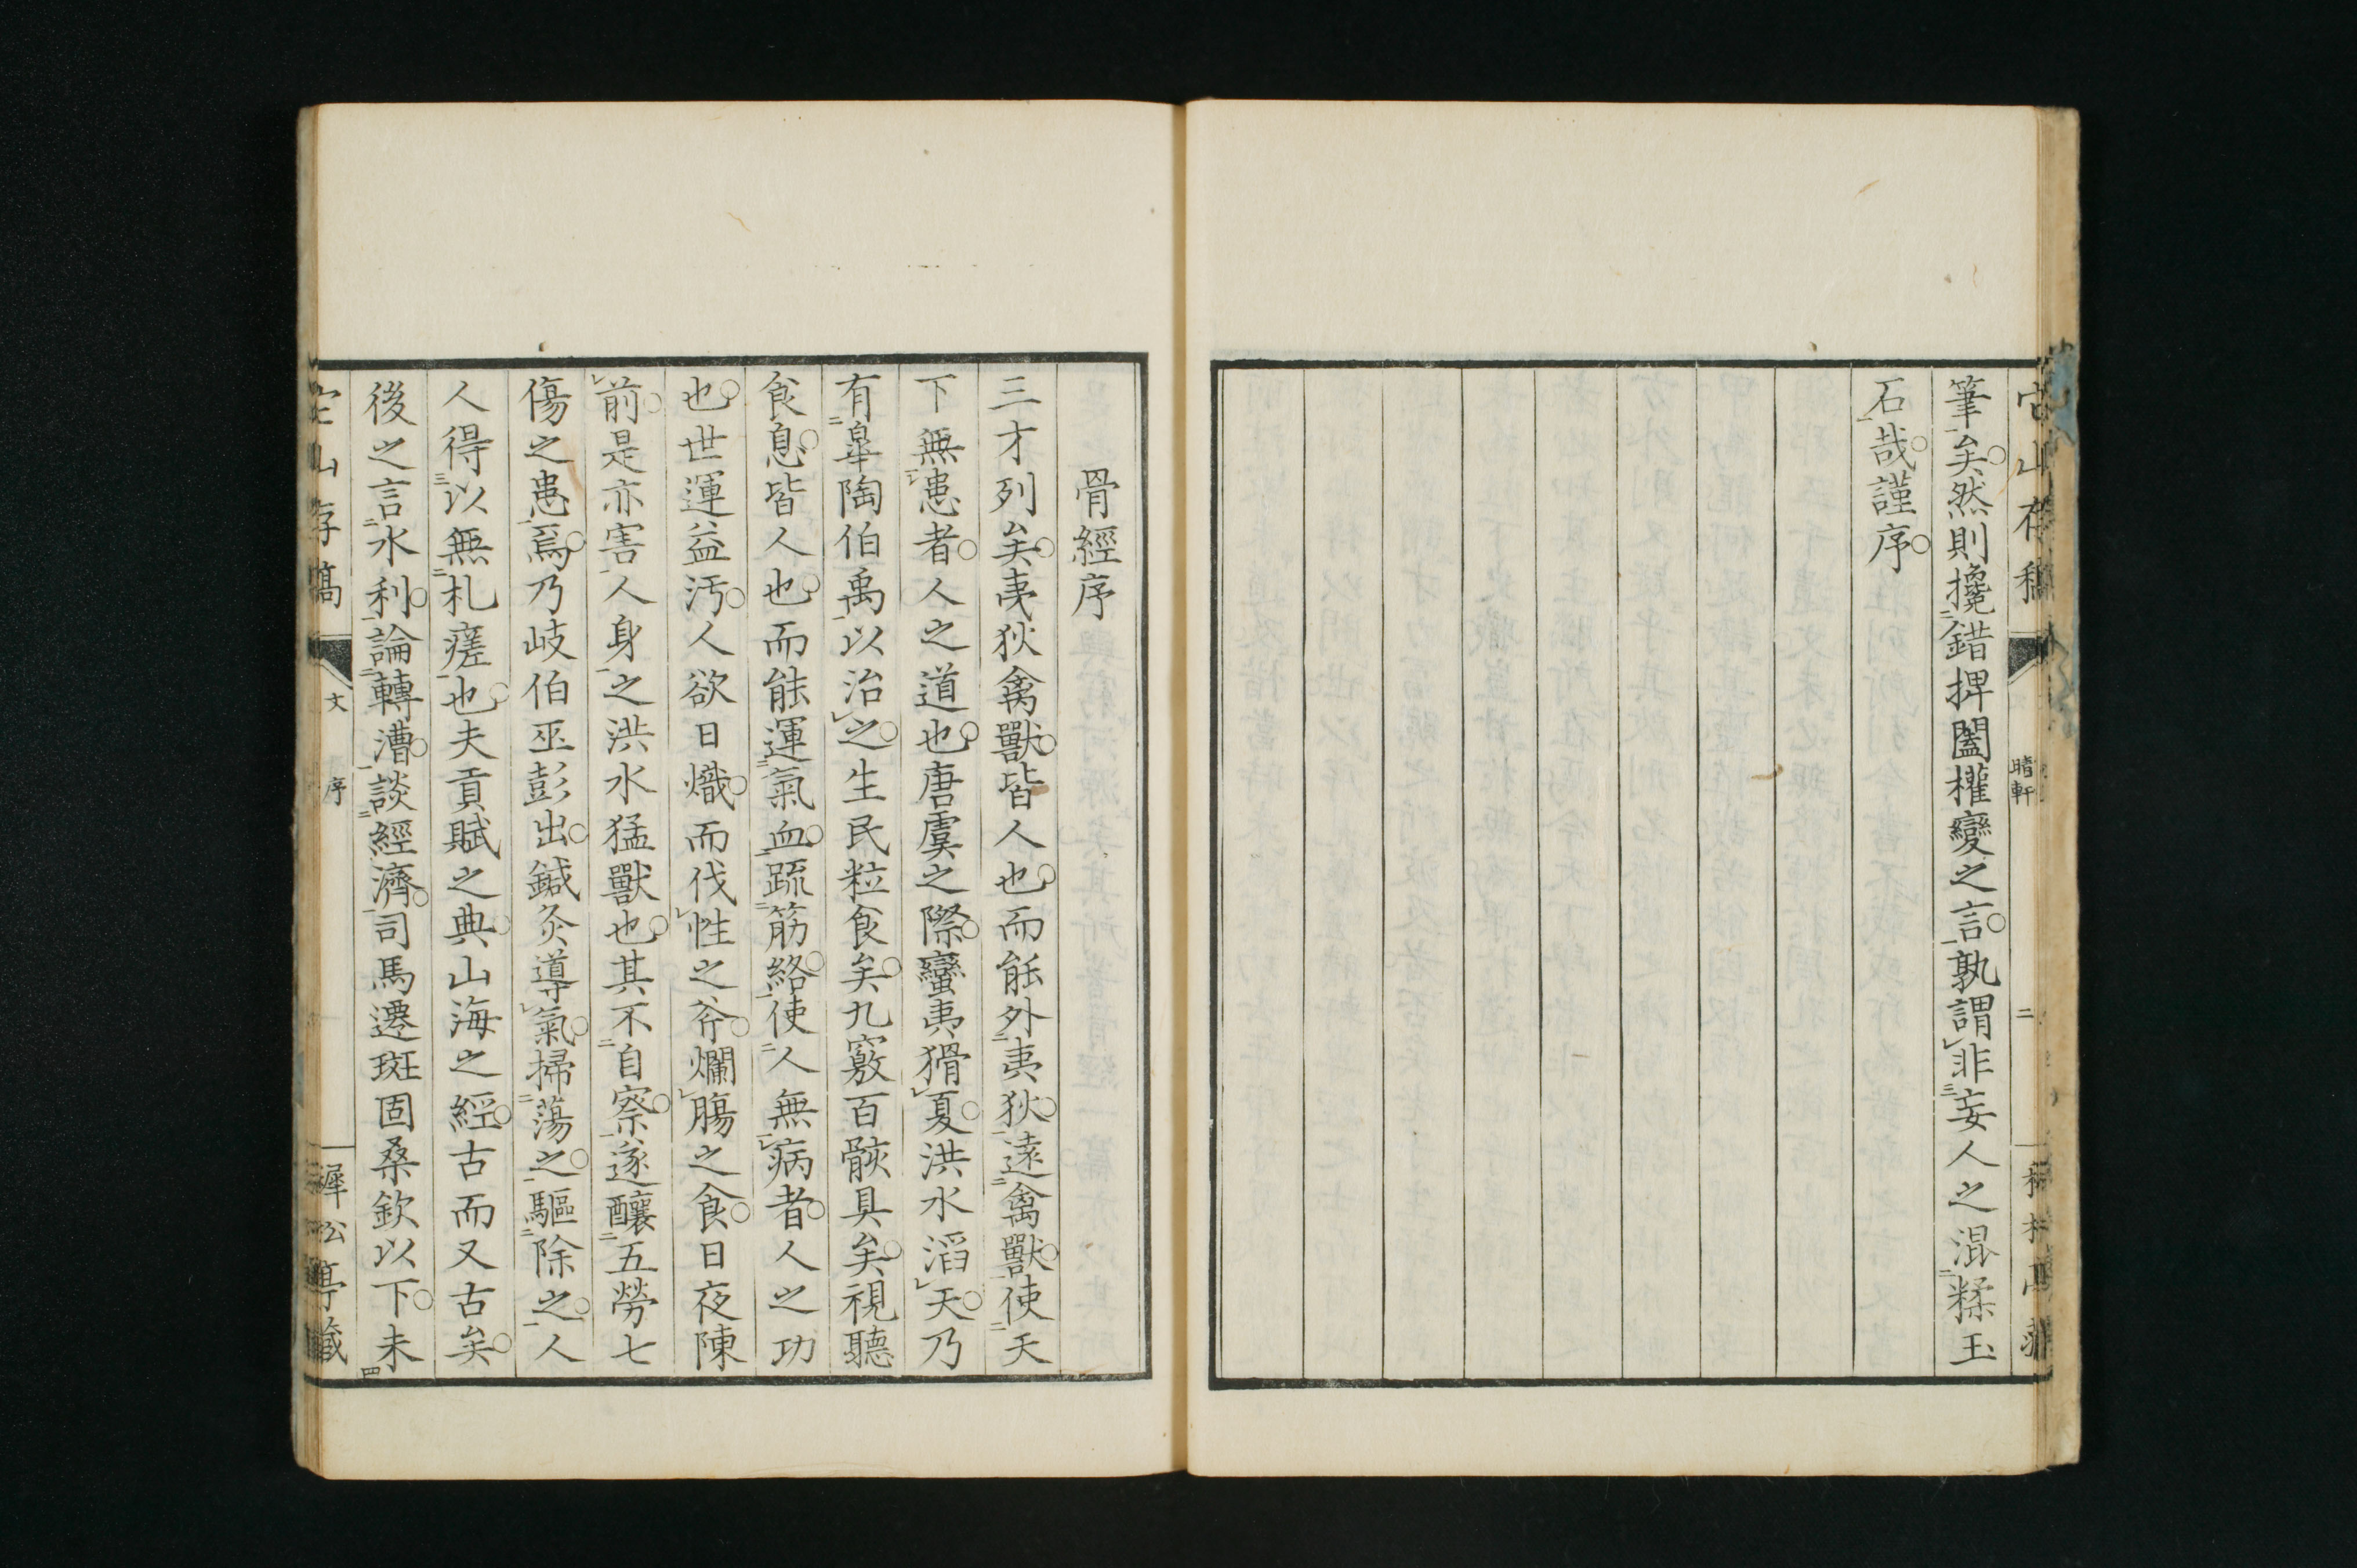 筆矣然則攙錯捭闔權變之言孰謂非妄人之混糅玉
石哉謹序
骨經序
三才列矣夷狄禽獸皆人也而能外夷狄遠禽獸使天
下無患者人之道也唐虞之際蠻夷猾夏洪水滔天乃
有皐陶伯禹以治之生民粒食矣九竅百骸具矣視聽
食息皆人也而能運氣血疏筋絡使人無病者人之功
也世運益汚人欲日熾而伐性之斧爛膓之食日夜陳
前是亦害人身之洪水猛獸也其不自察遂釀五勞七
傷之患焉乃岐伯巫彭出鍼灸導氣掃蕩之驅除之人
人得以無札瘥也夫貢賦之典山海之經古而又古矣
後之言水利論轉漕談經濟司馬遷班固桑欽以下未
文 序